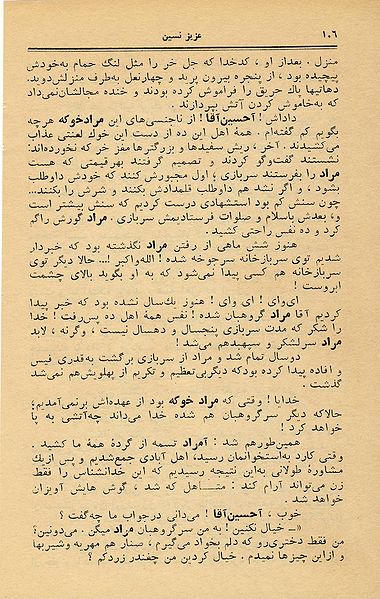 ۱۰۶
عزیز نسین
منزل . بعداز او ، کدخدا که جل خر را مثل لنگ حمام به‌خودش
پیچیده بود ، از پنجره بیرون پرید و چهارنعل به‌طرف منزلش‌دوید.
دهاتیها پاك حریق را فراموش کرده بودند و خنده مجالشان‌نمی‌داد
که به‌خاموش کردن آتش بپردازند .
داداش ! آحسین‌آقا ! از ناجنسی‌های این مرادخوکه هرچه
بگویم کم گفته‌ام . همهٔ اهل این ده از دست این خوك لعنتی عذاب
می‌کشیدند . آخر ، ریش سفیدها و بزرگترها مغز خر که نخورده‌اند:
نشستند گفت‌وگو کردند و تصمیم گرفتند بهرقیمتی که هست
مراد را بفرستند سربازی ؛ اول مجبورش کنند که خودش داوطلب
بشود ، و اگر نشد هم داوطلب قلمدادش بکنند و شرش را بکنند...
چون سنش کم بود استشهادی درست کردیم که سنش بیشتر است
و، بعدش باسلام و صلوات فرستادیمش سربازی . مراد گورش راگم
کرد و ده نفس راحتی کشید .
هنوز شش ماهی از رفتن مراد نگذشته بود که خبردار
شدیم توی سربازخانه سرجوخه شده ! الله‌واکبر !... حالا دیگر توی
سربازخانه هم کسی پیدا نمی‌شود که به او بگوید بالای چشمت
ابروست !
ای‌وای ! ای وای ! هنوز یك‌سال نشده بود که خبر پیدا
کردیم آقا مراد گروهبان شده ! نفس همهٔ اهل ده پس‌رفت ! خدا
را شکر که مدت سربازی پنجسال و دهسال نیست ، وگرنه ، لابد
مراد سرلشکر و سپهبدهم می‌شد !
دوسال تمام شد و مراد از سربازی برگشت به‌قدری فیس
و افاده پیدا کرده بودکه دیگربی‌تعظیم و تکریم از پهلویش‌هم نمی‌شد
گذشت .
خدایا ! وقتی که مراد خوکه بود از عهده‌اش برنمی‌آمدیم؛
حالاکه دیگر سرگروهبان هم شده خدا می‌داند چه‌آتشی به پا
خواهد کرد !
همین‌طورهم شد : آمراد تسمه از گردهٔ همهٔ ما کشید .
وقتی کارد به‌استخوانمان رسید، اهل آبادی جمع‌شدیم و پس ازیك
مشاورهٔ طولانی به‌این نتیجه رسیدیم که این خدانشناس را فقط
زن می‌تواند آرام کند : متـــأهل که شد ، گوش هایش آویزان
خواهد شد .
خوب ، آحسین‌آقا ! می‌دانی درجواب ما چه‌گفت ؟
«ــ خیال نکنین ! به من سرگروهبان مراد میگن . می‌دونین؟
من فقط دختری‌رو که دلم بخواد می‌گیرم ، صنار هم مهریه وشیربها
و ازاین چیزها نمیدم . خیال کردین من چقندر زردکم ؟